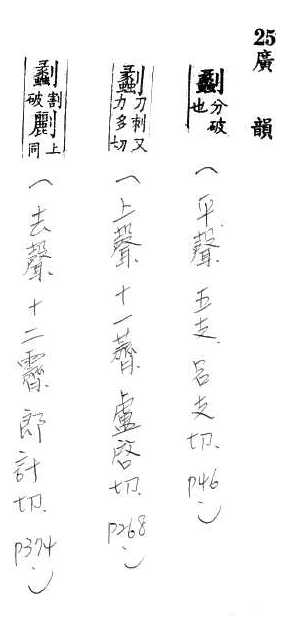 25廣韻
劙分破也(平聲.五支.呂支切.P46.)
劙刀刺又力多切(上聲.十一薺.盧啓切.P268.)
劙割破㔏上同(去聲.十二霽.郎計切.P374.)